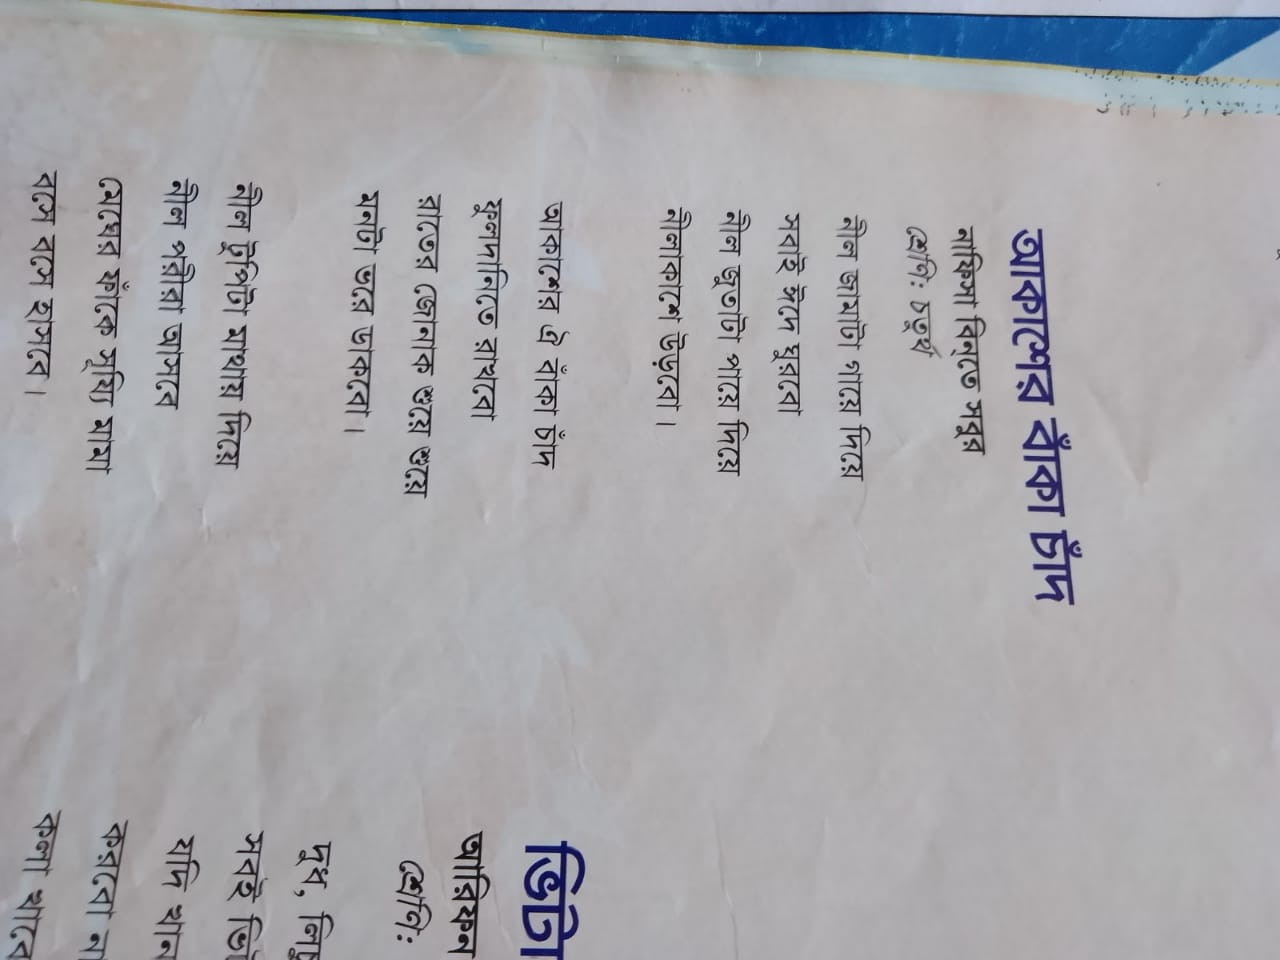 আকাশের বাঁকা চাঁদ
নাফিসা বিনতে সবুর
শ্রেণি: চতুর্থ
নীল জামাটা গায়ে দিয়ে
সবাই ঈদে ঘুরবো
নীল জুতাটা পায়ে দিয়ে
নীলাকাশে উড়বো।
আকাশের ঐ বাঁকা চাঁদ
ফুলদানিতে রাখবো
রাতের জোনাক শুয়ে শুয়ে
মনটা ভরে ডাকবো।
নীল টুপিটা মাথায় দিয়ে
নীল পরীরা আসবে
মেঘের ফাঁকে সূয্যি মামা
বসে বসে হাসবে।
ভিটা
আরিফুল
শ্রেণি:
দুধ,
সবই
যদি খান
করবো না
কলা খাবে